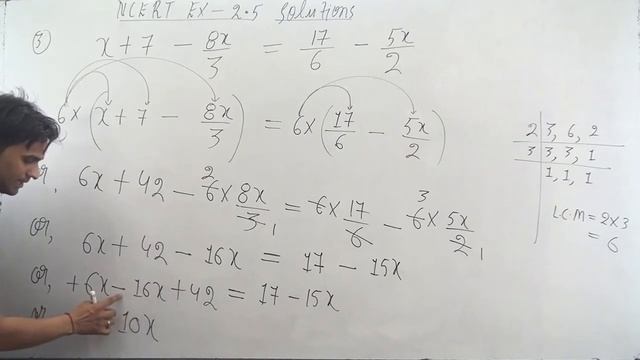 NCERT EX-2.5 Solutions
③ x + 7 - 8x/3 = 17/6 - 5x/2
6 × (x + 7 - 8x/3) = 6 × (17/6 - 5x/2)
or, 6x + 42 - 6 × 8x/3 = 6 × 17/6 - 6 × 5x/2
2 1 3 1
or, 6x + 42 - 16x = 17 - 15x
or, + 6x - 16x + 42 = 17 - 15x
10x
2 | 3, 6, 2
3 | 3, 3, 1
1, 1, 1
L.C.M = 2 × 3
= 6